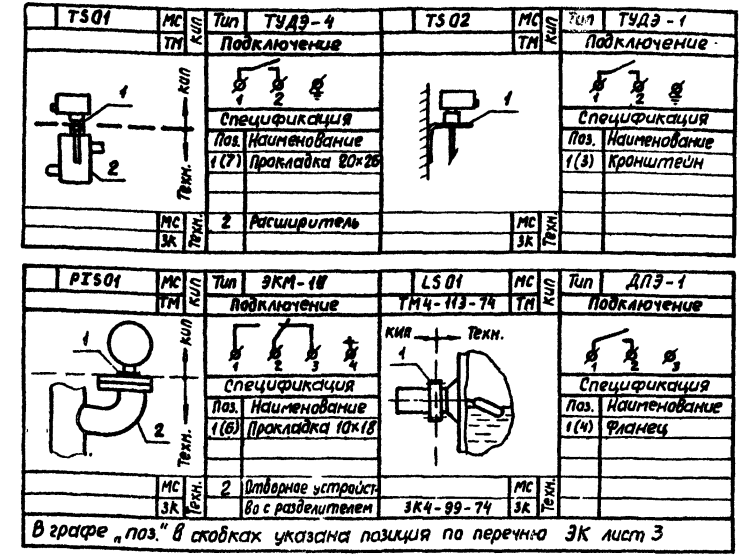 TS01 МС КИП Тип ТУДЭ-4
ТМ Подключение
1 2
Спецификация
Поз. Наименование
1(7) Прокладка 20×26
2 Расширитель
1
2
КИП
Техн.
МС Техн.
ЗК
TS02 МС КИП Тип ТУДЭ-1
ТМ Подключение
1 2
Спецификация
Поз. Наименование
1(3) Кронштейн
1
МС Техн.
ЗК
PIS01 МС КИП Тип
ТМ Подключение
1 2 3 4
Спецификация
Поз. Наименование
1(6) Прокладка 10×18
2 Отборное устройст-
во с разделителем
1
2
КИП
Техн.
МС Техн.
ЗК
LS01 МС КИП Тип ДПЭ-1
ТМ4-113-74 ТМ Подключение
КИП Техн.
1
1 2 3
Спецификация
Поз. Наименование
1(4) Фланец
МС Техн.
ЗК4-99-74 ЗК
В графе „поз." в скобках указана позиция по перечню ЭК лист 3